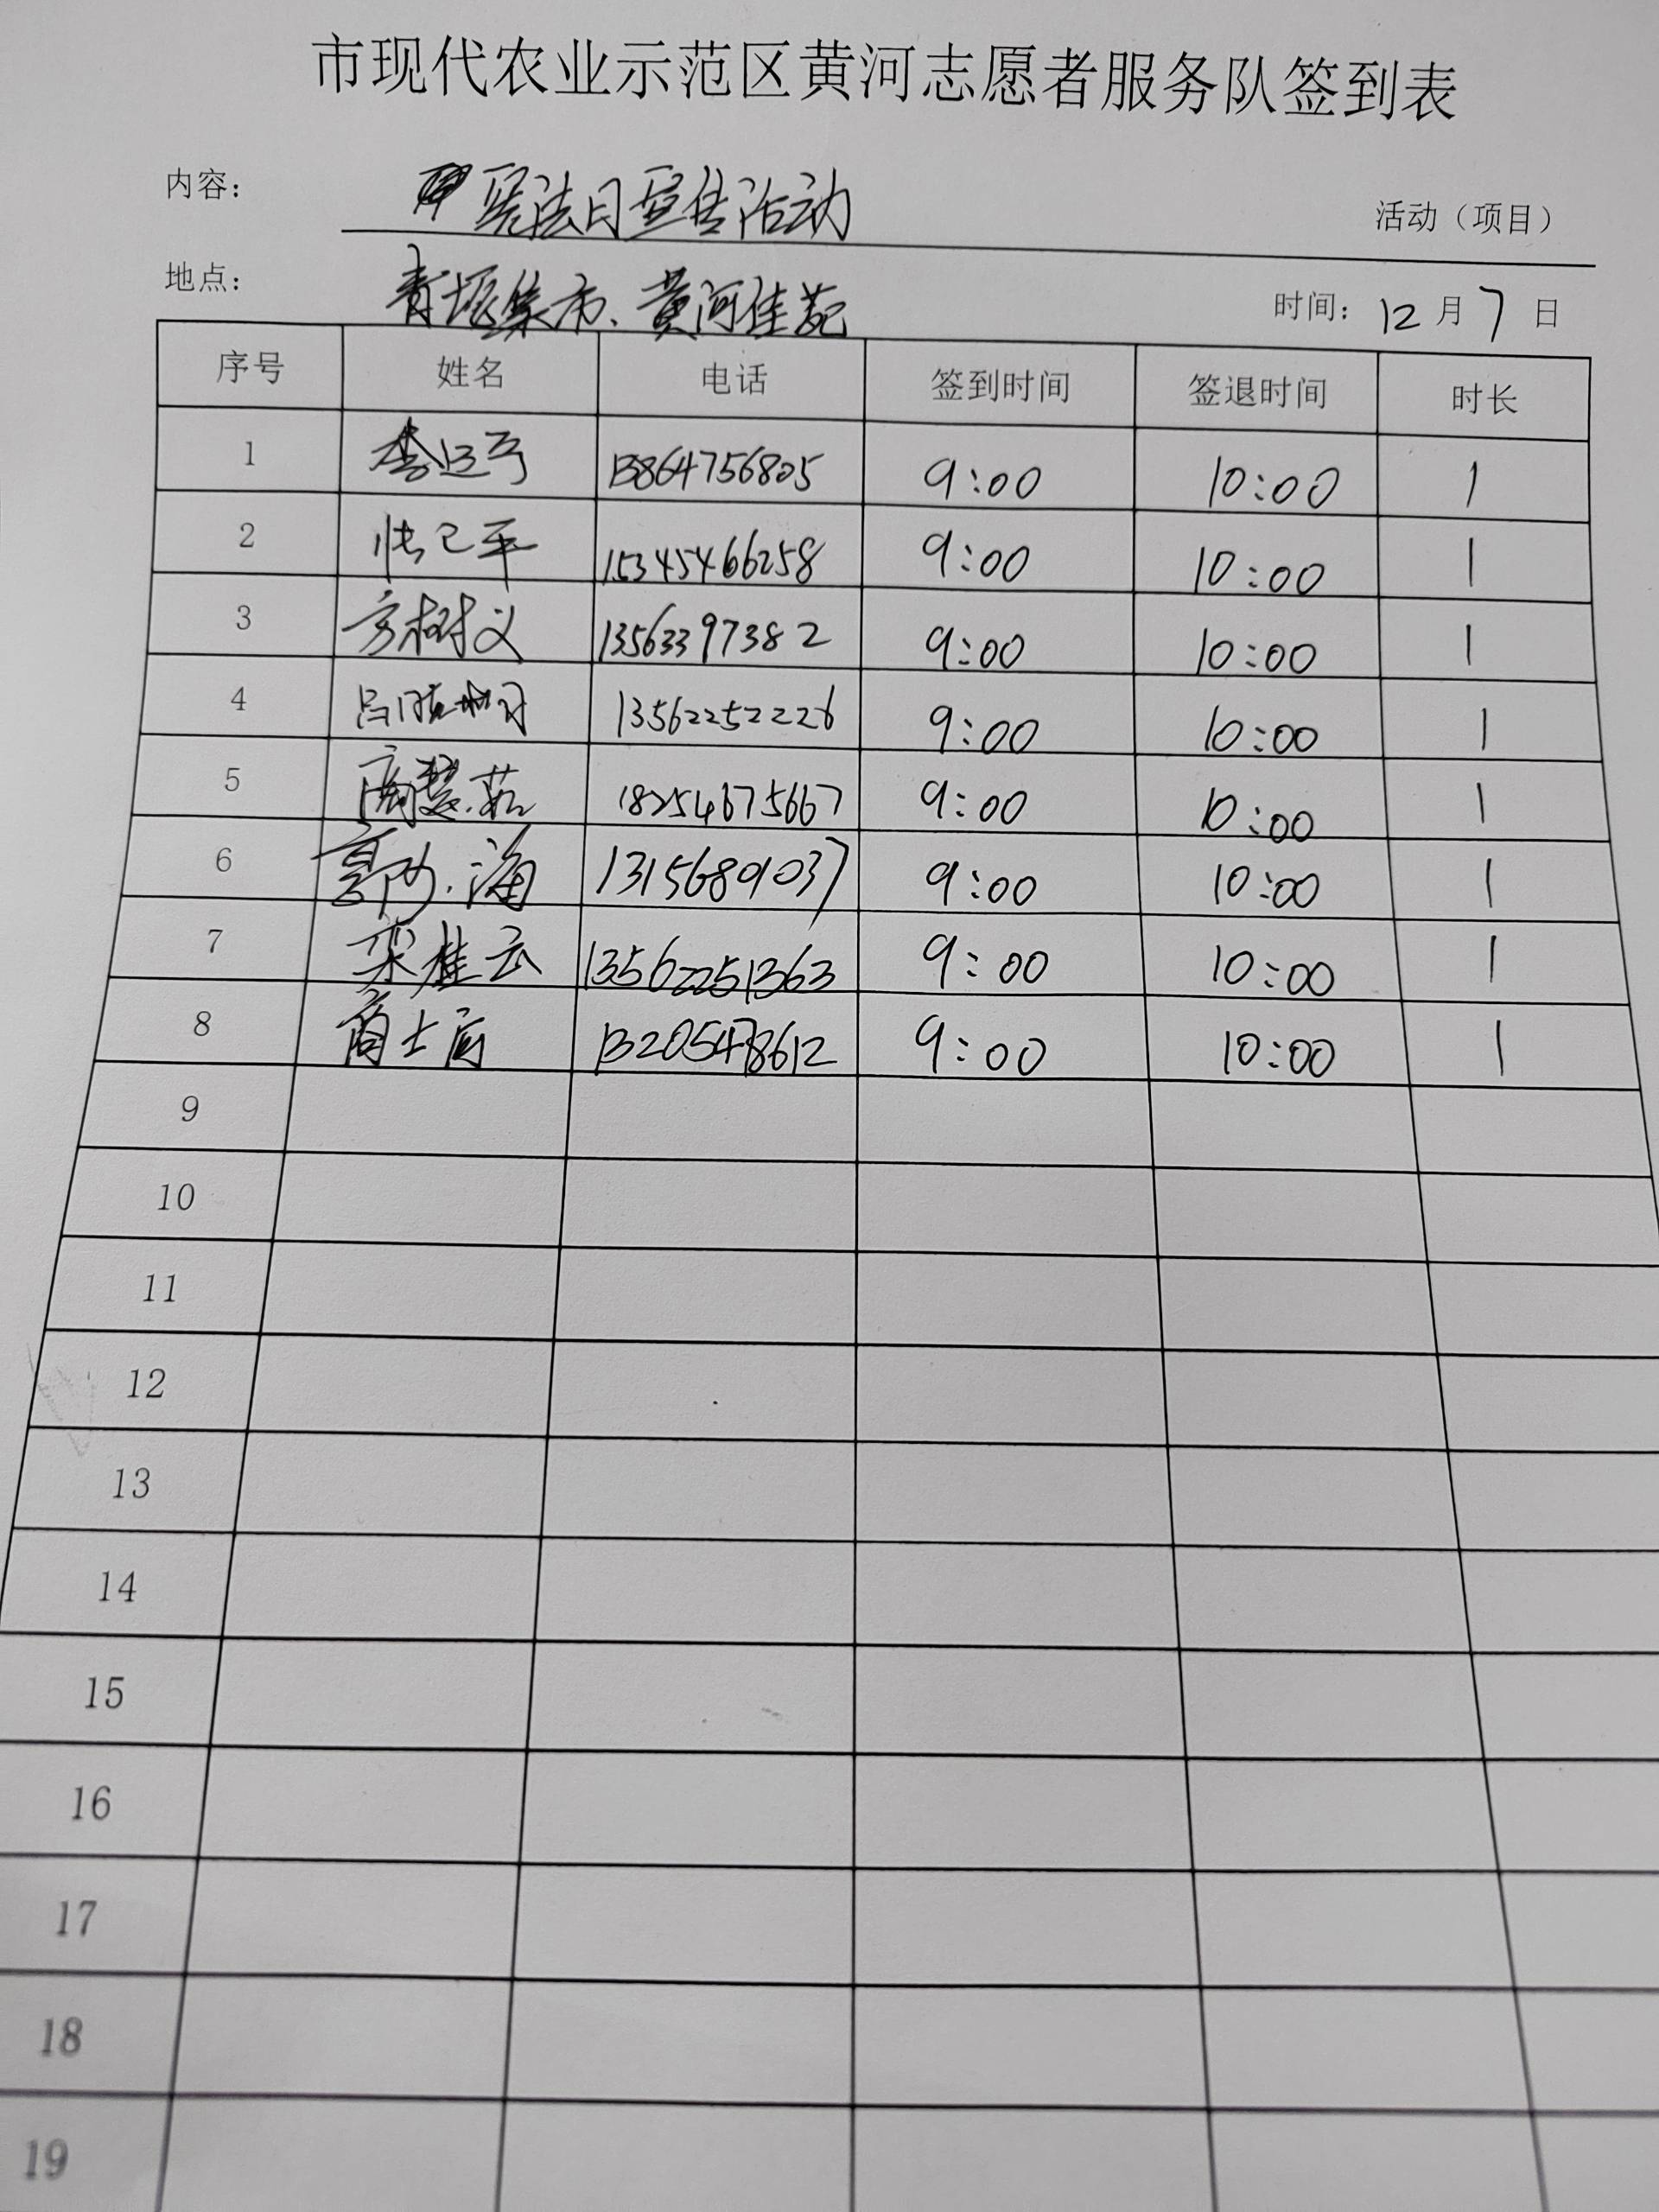 市现代农业示范区黄河志愿者服务队签到表
内容： 宪法日宣传活动 活动（项目）
地点： 青垤集市、黄河佳苑 时间：12月7日
序号 姓名 电话 签到时间 签退时间 时长
1 13864756805 9:00 10:00 1
2 15345466258 9:00 10:00 1
3 方树义 13563397382 9:00 10:00 1
4 13562252226 9:00 10:00 1
5 18254675667 9:00 10:00 1
6 13156891037 9:00 10:00 1
7 宋桂云 13562251363 9:00 10:00 1
8 13205478612 9:00 10:00 1
9
10
11
12
13
14
15
16
17
18
19